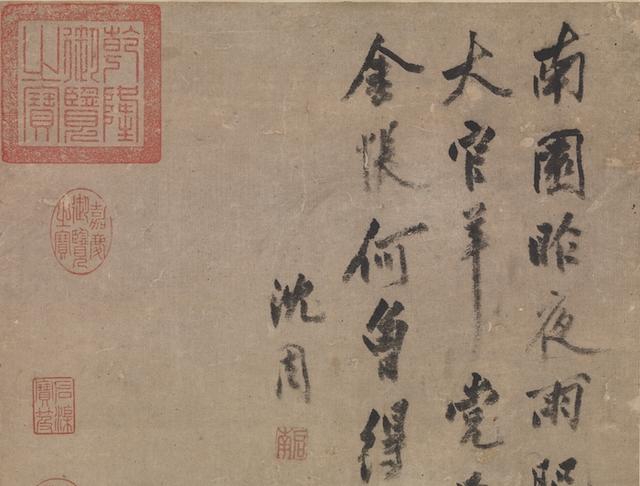 南園昨夜雨
大官羊党
金帳何曾得
沈周
啟南
乾隆御覽之寶
嘉慶御覽之寶
石渠寶笈